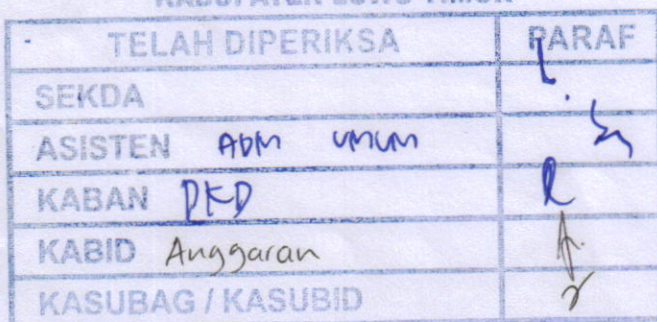 KABUPATEN LUWU TIMUR
TELAH DIPERIKSA PARAF
SEKDA
ASISTEN ADM UMUM
KABAN PKD
KABID Anggaran
KASUBAG / KASUBID